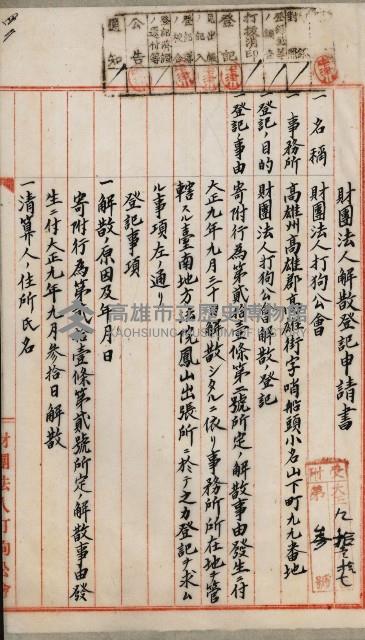 財團法人解散登記申請書
一 名稱 財團法人打狗公會
一 事務所 高雄州高雄郡高雄街字哨船頭小名山下町九九番地
一 登記ノ目的 財團法人打狗公會解散ノ登記
一 登記ノ事由 寄附行為第貳拾壹條第二號所定ノ解散事由發生ニ付
大正九年九月三十日解散シタルニ依リ事務所所在地ヲ管
轄スル臺南地方法院鳳山出張所ニ於テ之カ登記ヲ求ム
ル事項左ノ通リ
登記事項
一 解散ノ原因及年月日
寄附行為第貳拾壹條第貳號所定ノ解散事由發
生ニ付大正九年九月參拾日解散
一 清算人ノ住所氏名
登記
公告
通知
財團法人打狗公會
高雄市立歷史博物館
KAOHSIUNG MUSEUM OF HISTORY